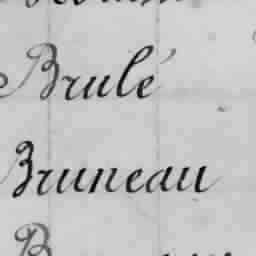 Brulé
Bruneau